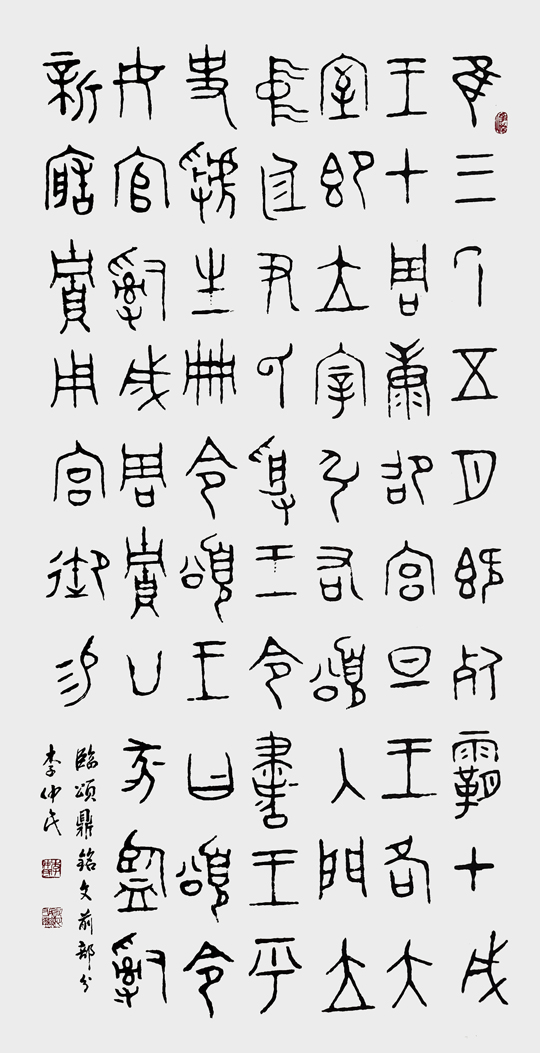 隹三年五月既死霸甲戌
王才周康卲宮旦王各大
室即立宰弘右頌入門立
中廷尹氏受王令書王乎
史虢生冊令頌王曰頌令
女官𤔲成周貯廿家監𤔲
新造貯用宮御易
臨頌鼎銘文前部分
李仲民